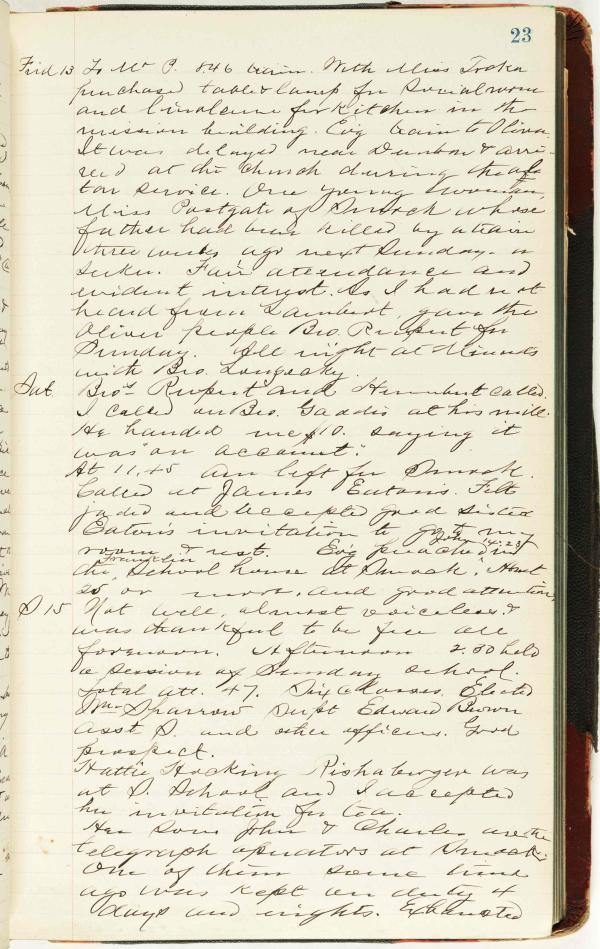 23
Frid 13 To Mt P. 8.46 train. With Miss
purchased table & lamp for Social room
and linoleum for Kitchen in the
mission building. Evg train to Oliver.
It was delayed near Dunbar & arri-
ved at the church during the af-
ter service. One young woman,
Miss Postgate of Smock whose
father had been killed by a train
three weeks ago next Sunday - a
seeker. Fair attendance and
evident interest. As I had not
heard from Lambert, gave the
Oliver people Bro. Rupert for
Sunday. All night at
with Bro.
Sat. Bros. Rupert and Humbert called.
I called on Bro. Gaddis at his mill.
He handed me $10. saying it
was "on account".
At 11.45 am left for Smock.
Called at James Eaton's. Felt
jaded and accepted good sister
Eaton's invitation to go to my
room & rest. Evg preached in
John 14:23
the Franklin School house at Smock.
or more, and good attention,
S 15 Not well, almost voiceless &
was thankful to be free all
forenoon. Afternoon 2.30 held
a session of Sunday school.
Total att. 47. Six classes. Elected
Wm Sparrow Supt Edward Brown
asst S. and other officers. Good
prospect.
Hattie Hocking Rishaberger was
at S. School and I accepted
her invitation for tea.
Her sons John & Charles are the
telegraph operators at Smock.
One of them some time
ago was kept on duty 4
days and nights. Exhausted